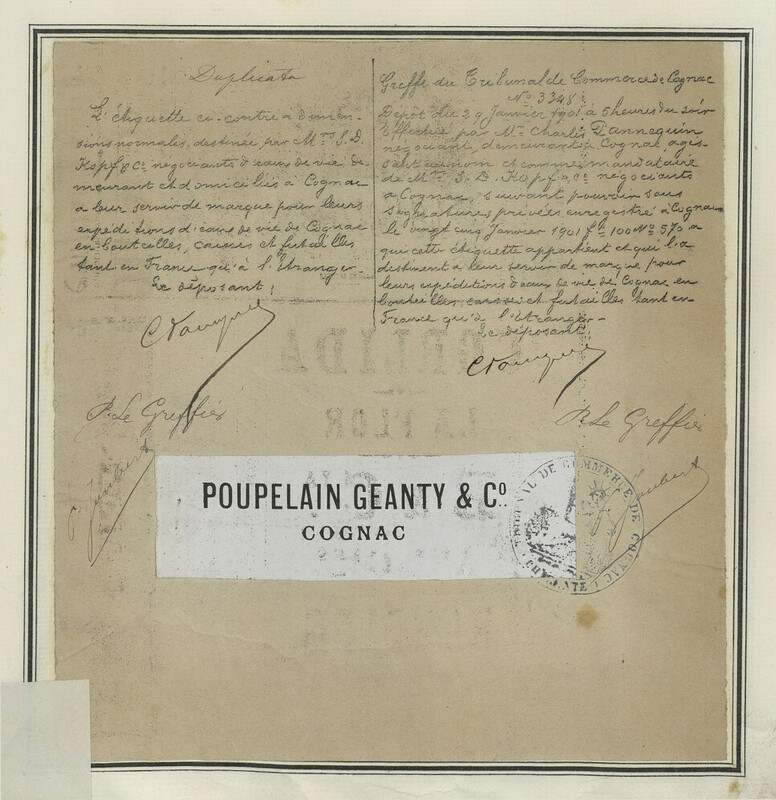 Duplicata
L'étiquette ci-contre à dimen-
sions normales, destinée par Mrs S. D.
Kopf & Ce négociants d'eaux de vie de-
meurant et domiciliés à Cognac
a leur servir de marque pour leurs
expéditions d'eaux de vie de Cognac
en bouteilles, caisses et futailles
tant en France qu'à l'étranger-
Le déposant;
P. Le Greffier
Joubert
Greffe du Tribunal de Commerce de Cognac
No 3348
Dépôt du 29 Janvier 1901 à 5 heures du soir
Effectué par Mr. Charles Dannequin
négociant, demeurant à Cognac, agis-
sant au nom et comme mandataire
de Mrs S. D. Kopf & Ce négociants
à Cognac, suivant pouvoir sous
signatures privées enregistré à Cognac
le vingt cinq Janvier 1901 fo 100 No 570 a
qui cette étiquette appartient et qui l'a
destinent à leur servir de marque pour
leurs expéditions d'eaux de vie de Cognac en
bouteilles, caisses et futailles tant en
France qu'à l'étranger-
Le déposant
P. Le Greffier
Joubert
POUPELAIN GEANTY & Co.
COGNAC
TRIBUNAL DE COMMERCE DE COGNAC
CHARENTE